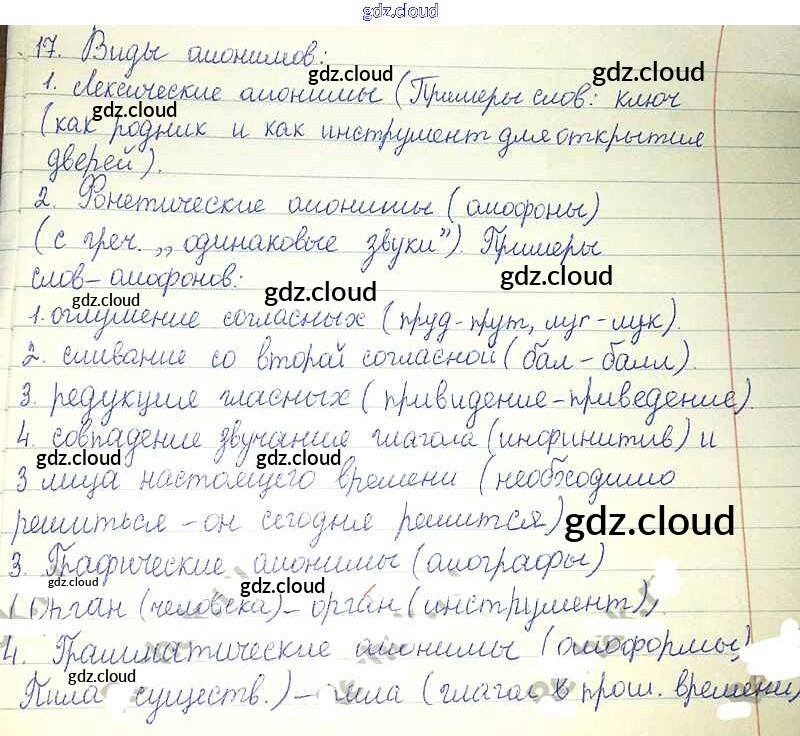 gdz.cloud
17. Виды омонимов:
gdz.cloud gdz.cloud
1. Лексические омонимы (Примеры слов: ключ
gdz.cloud
(как родник и как инструмент для открытия
дверей).
2. Фонетические омонимы (омофоны)
(с греч. „одинаковые звуки”). Примеры
слов-омофонов:
gdz.cloud gdz.cloud gdz.cloud
1. оглушение согласных (пруд-прут, луг-лук).
2. сливание со второй согласной (бал-балл).
3. редукция гласных (привидение-приведение).
4. совпадение звучания глагола (инфинитив) и
gdz.cloud gdz.cloud
3 лица настоящего времени (необходимо
решиться - он сегодня решится)
gdz.cloud
3. Графические омонимы (омографы)
gdz.cloud gdz.cloud
Орган (человека) - орган (инструмент),
4. Грамматические омонимы (омоформы)
gdz.cloud
Пила существ.) - пила (глагол в прош. времени)
gdz.cloud